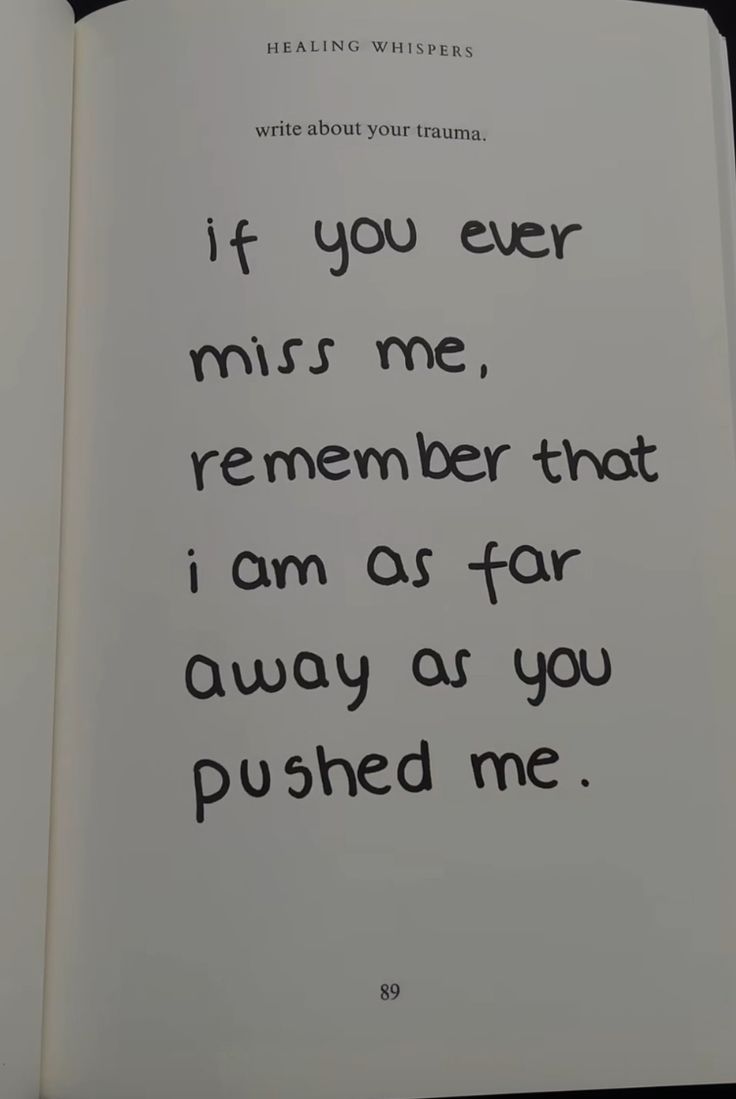 HEALING WHISPERS
write about your trauma.
if you ever
miss me,
remember that
i am as far
away as you
pushed me.
89